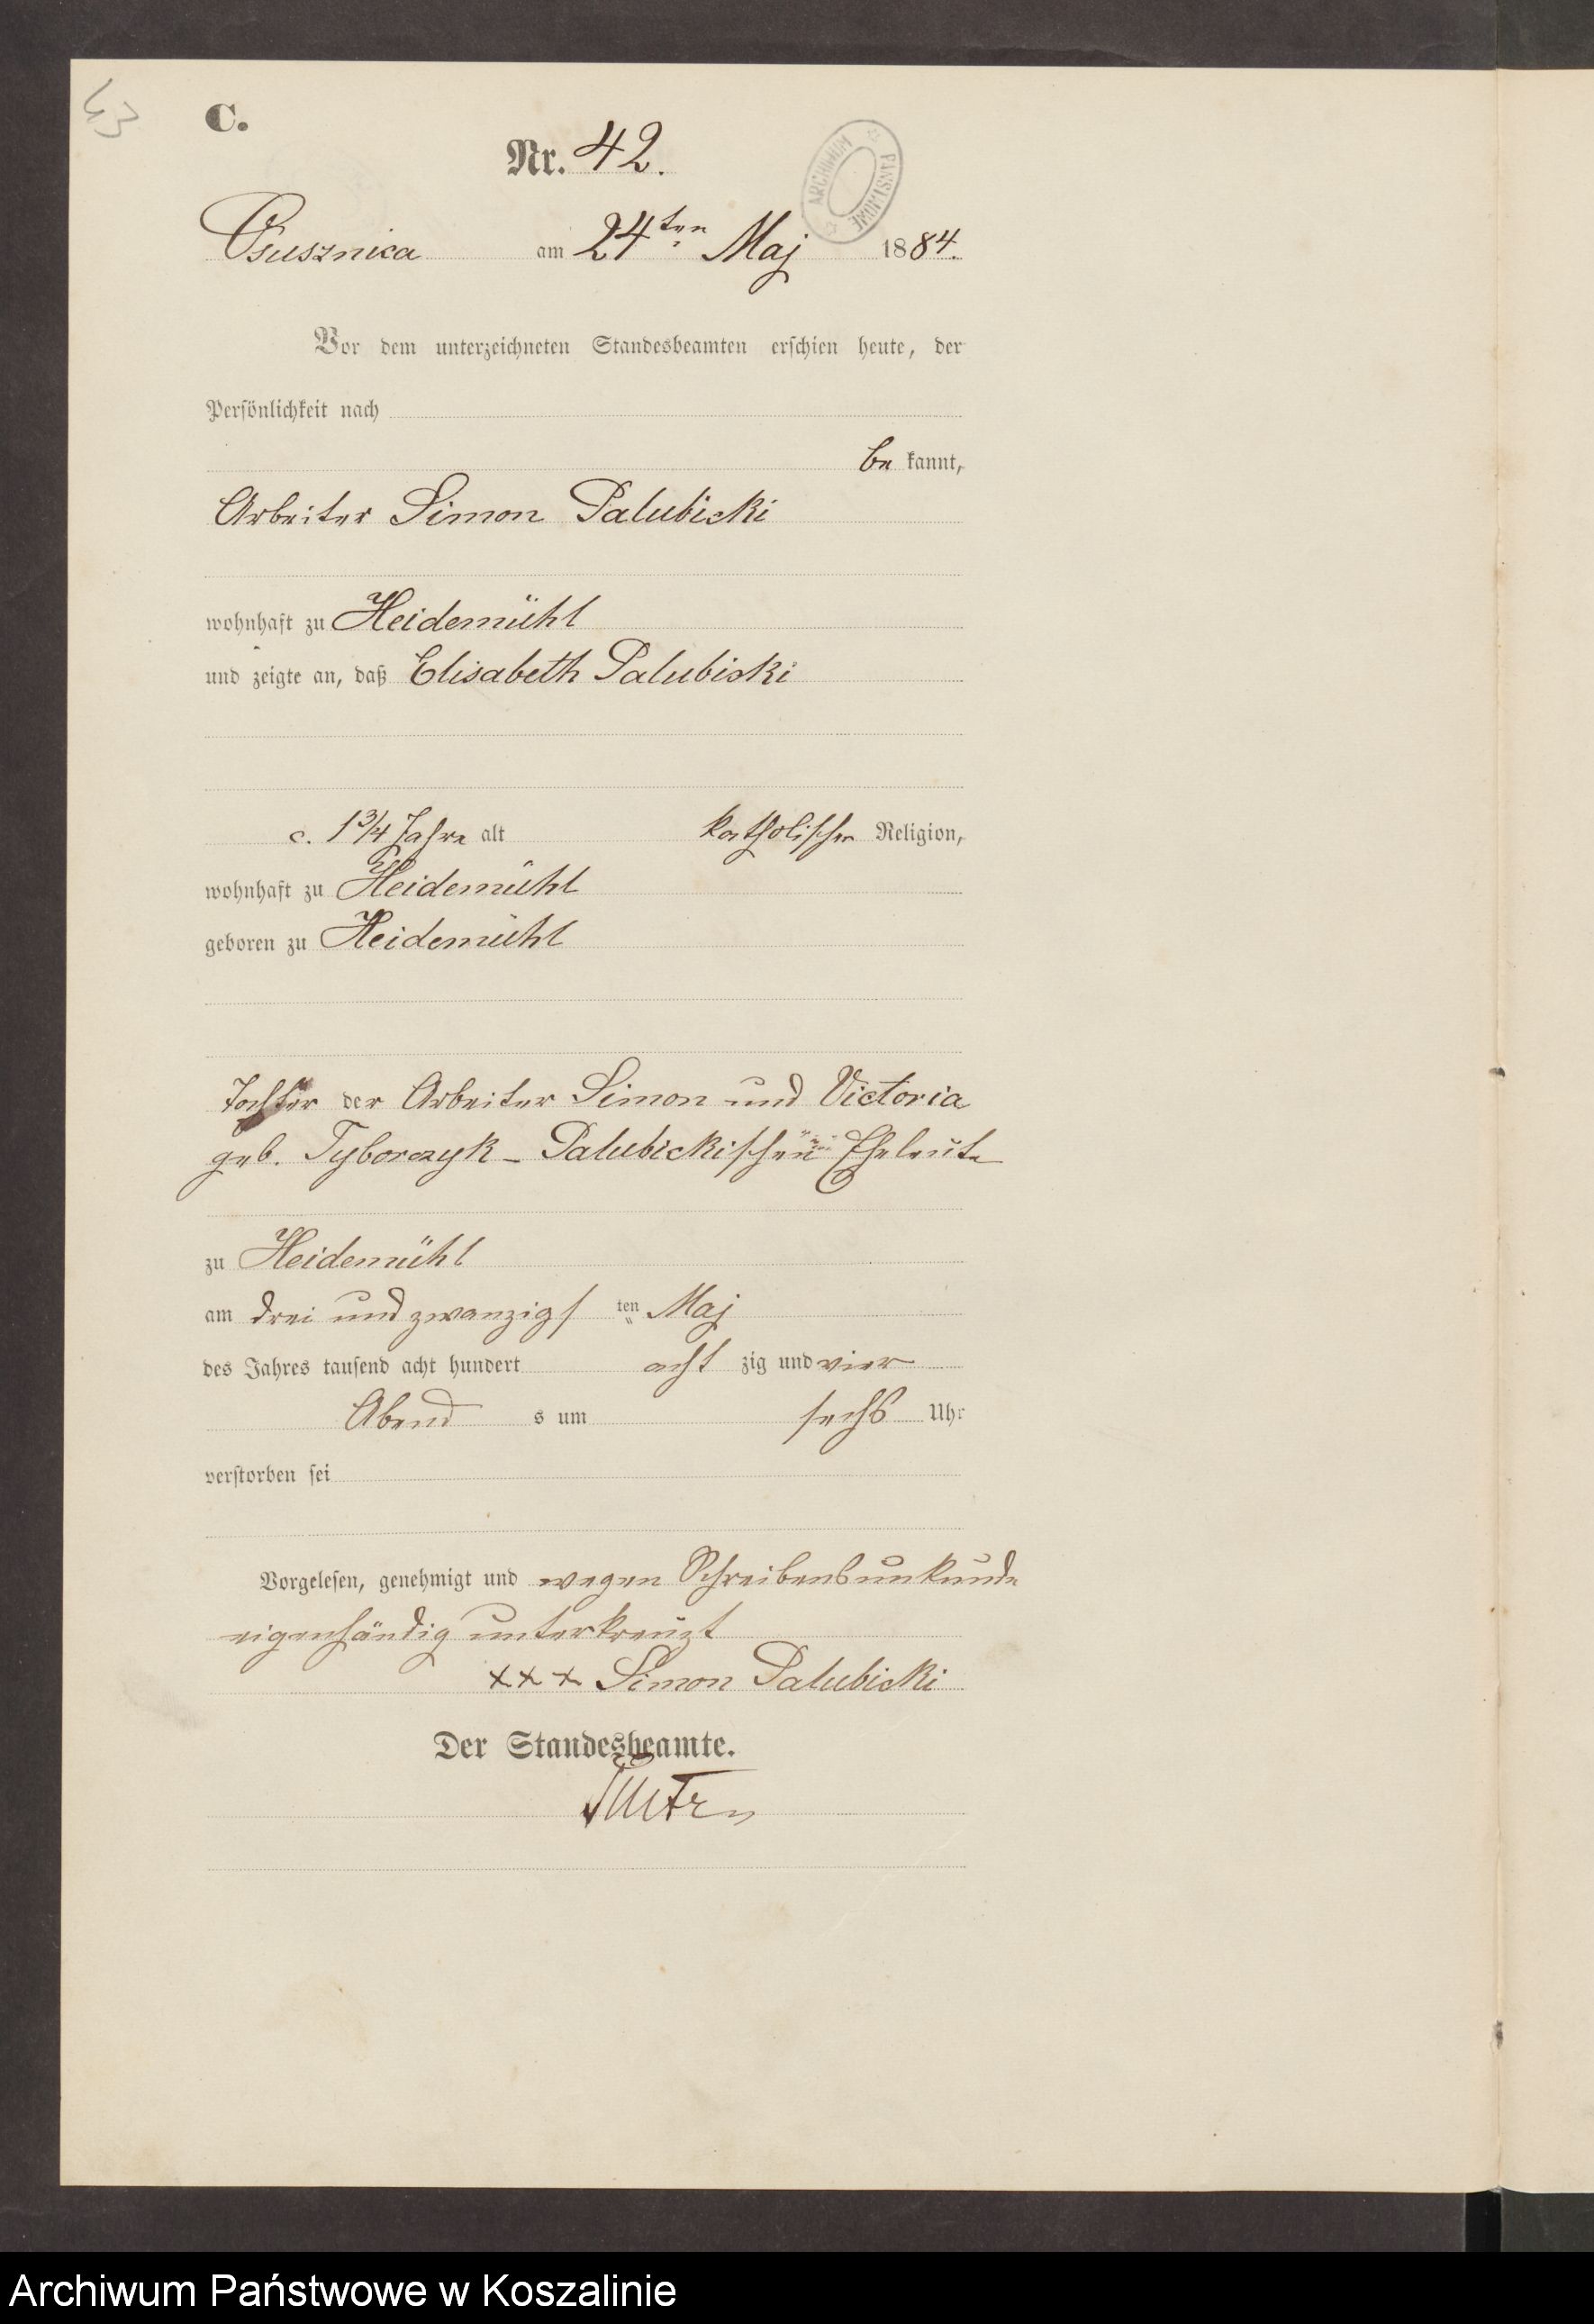 43
C.
Nr. 42.
ARCHIWUM PAŃSTWOWE
Osusznica am 24ten Maj 1884.
Vor dem unterzeichneten Standesbeamten erschien heute, der
Persönlichkeit nach
be kannt,
Arbeiter Simon Palubicki
wohnhaft zu Heidemühl
und zeigte an, daß Elisabeth Palubicki
c. 1 3/4 Jahre alt katholischer Religion,
wohnhaft zu Heidemühl
geboren zu Heidemühl
Tochter der Arbeiter Simon und Victoria
geb. Tyborczyk - Palubickischen Eheleute
zu Heidemühl
am drei und zwanzigs ten Maj
des Jahres tausend acht hundert acht zig und vier
Abend s um sechs Uhr
verstorben sei
Vorgelesen, genehmigt und wegen Schreibensunkunde
eigenhändig unterkreuzt
xxx Simon Palubicki
Der Standesbeamte.
Archiwum Państwowe w Koszalinie